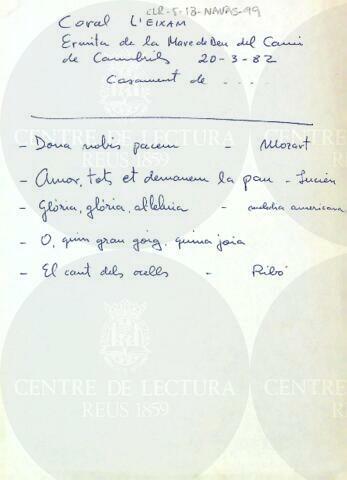 CLR-5-13-NAVAS-99
Coral L'EIXAM
Ermita de la Mare de Deu del Cami
de Cambrils 20-3-82
Casament de - . . .
- Dona nobis pacem - Mozart
- Amor, tots et demanem la pau - Lucién
- Glòria, glòria, al·leluia - melodia americana
- O, quin gran goig, quina joia
- El cant dels ocells - Ribó
CENTRE DE LECTURA
REUS 1859
CENTRE DE LECTURA
REUS 1859